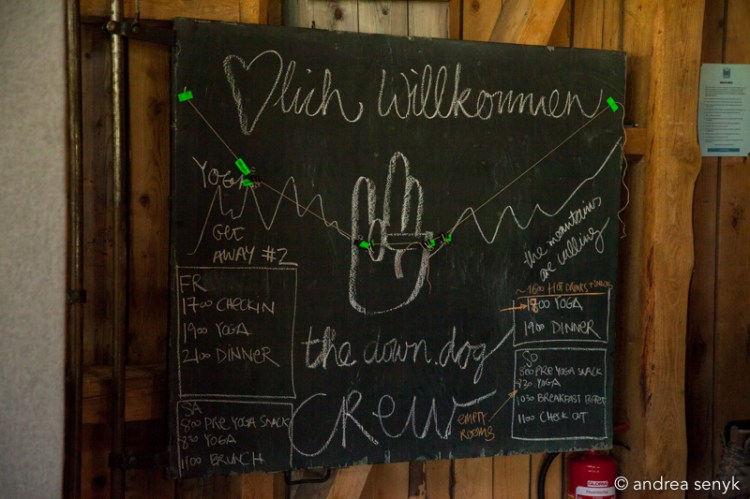 lich Willkommen
YOGA
GET
AWAY #2
the mountains
are calling
FR
1700 CHECKIN
1900 YOGA
2100 DINNER
SA
800 PRE YOGA SNACK
830 YOGA
1100 BRUNCH
the down.dog
CREW
~1600 HOT DRINKS + SNACK
1800 YOGA
1900 DINNER
SO
800 PRE YOGA SNACK
830 YOGA
1030 BREAKFAST
1100 CHECK OUT
EMPTY
ROOMS
© andrea senyk